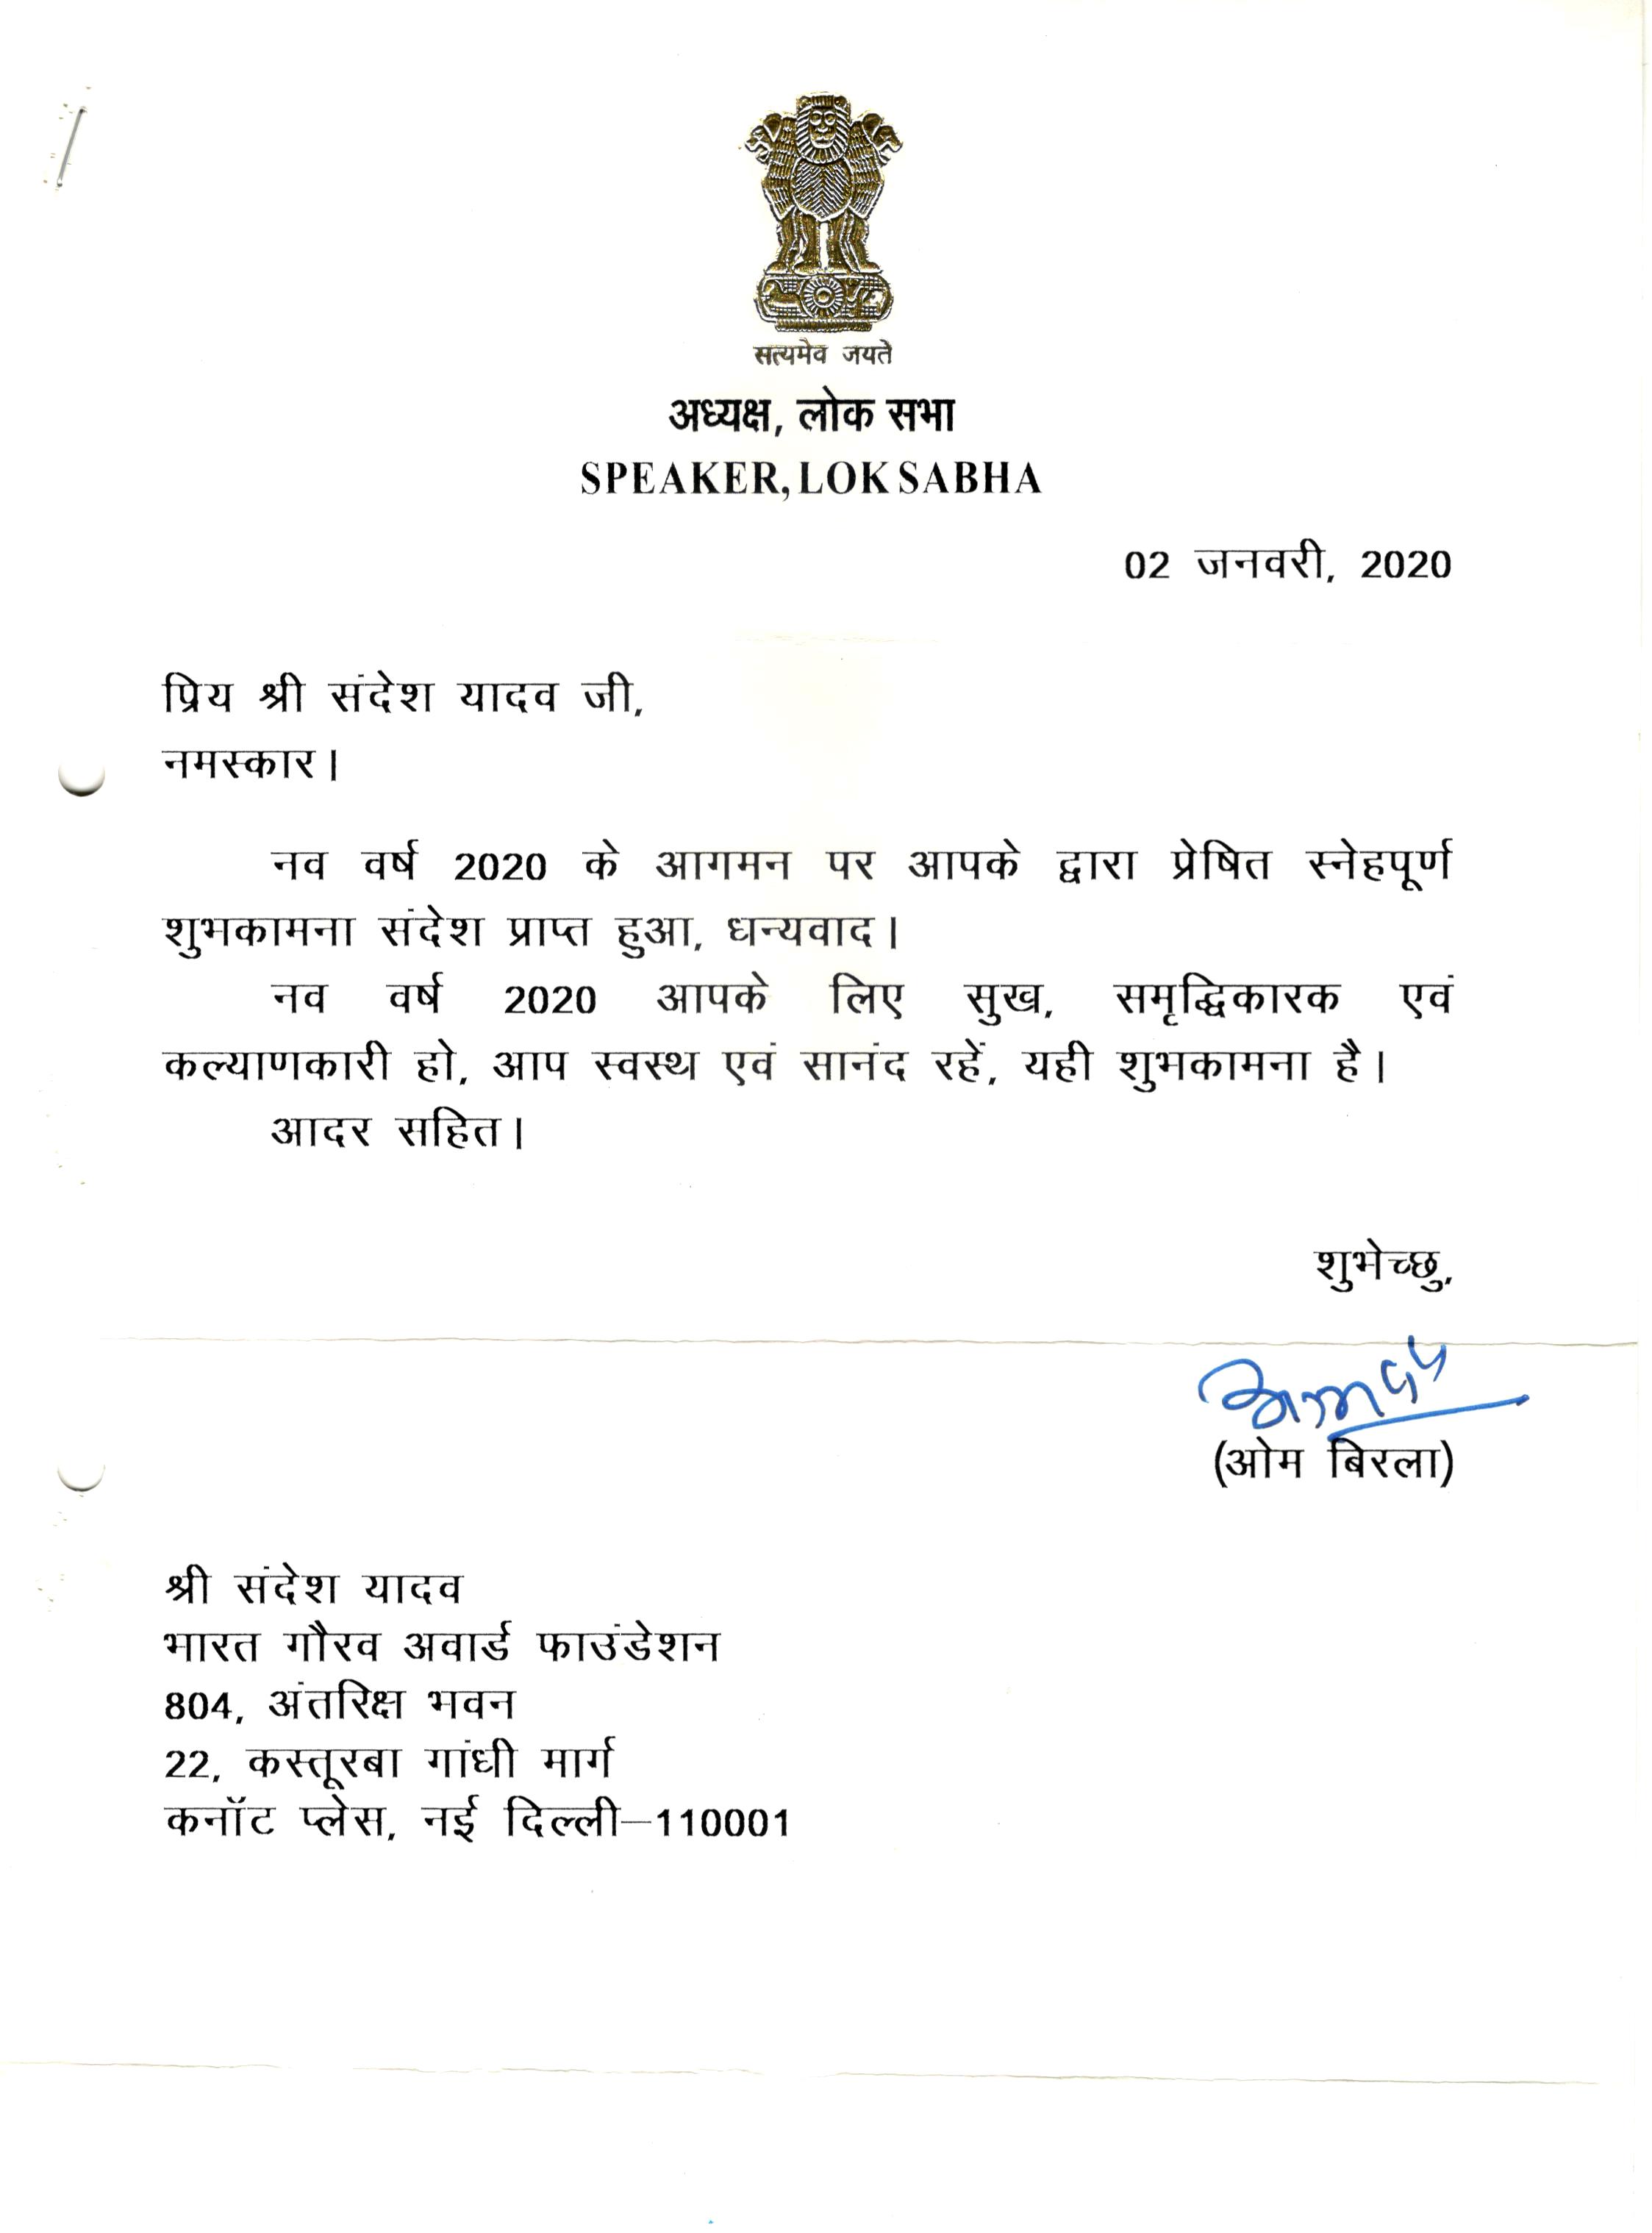 सत्यमेव जयते
अध्यक्ष, लोक सभा
SPEAKER, LOK SABHA
02 जनवरी, 2020
प्रिय श्री संदेश यादव जी,
नमस्कार।
नव वर्ष 2020 के आगमन पर आपके द्वारा प्रेषित स्नेहपूर्ण
शुभकामना संदेश प्राप्त हुआ, धन्यवाद।
नव वर्ष 2020 आपके लिए सुख, समृद्धिकारक एवं
कल्याणकारी हो, आप स्वस्थ एवं सानंद रहें, यही शुभकामना है।
आदर सहित।
शुभेच्छु,
(ओम बिरला)
श्री संदेश यादव
भारत गौरव अवार्ड फाउंडेशन
804, अंतरिक्ष भवन
22, कस्तूरबा गांधी मार्ग
कनॉट प्लेस, नई दिल्ली–110001